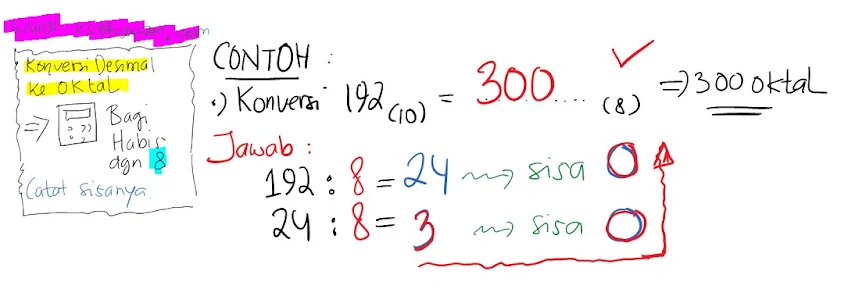 Konversi Desimal
ke Oktal
=> Bagi
Habis
dgn 8
Catat sisanya.
CONTOH :
•) Konversi 192 (10) = 300 .... (8) => 300 oktal
Jawab :
192 : 8 = 24 ~~> sisa 0
24 : 8 = 3 ~~> sisa 0